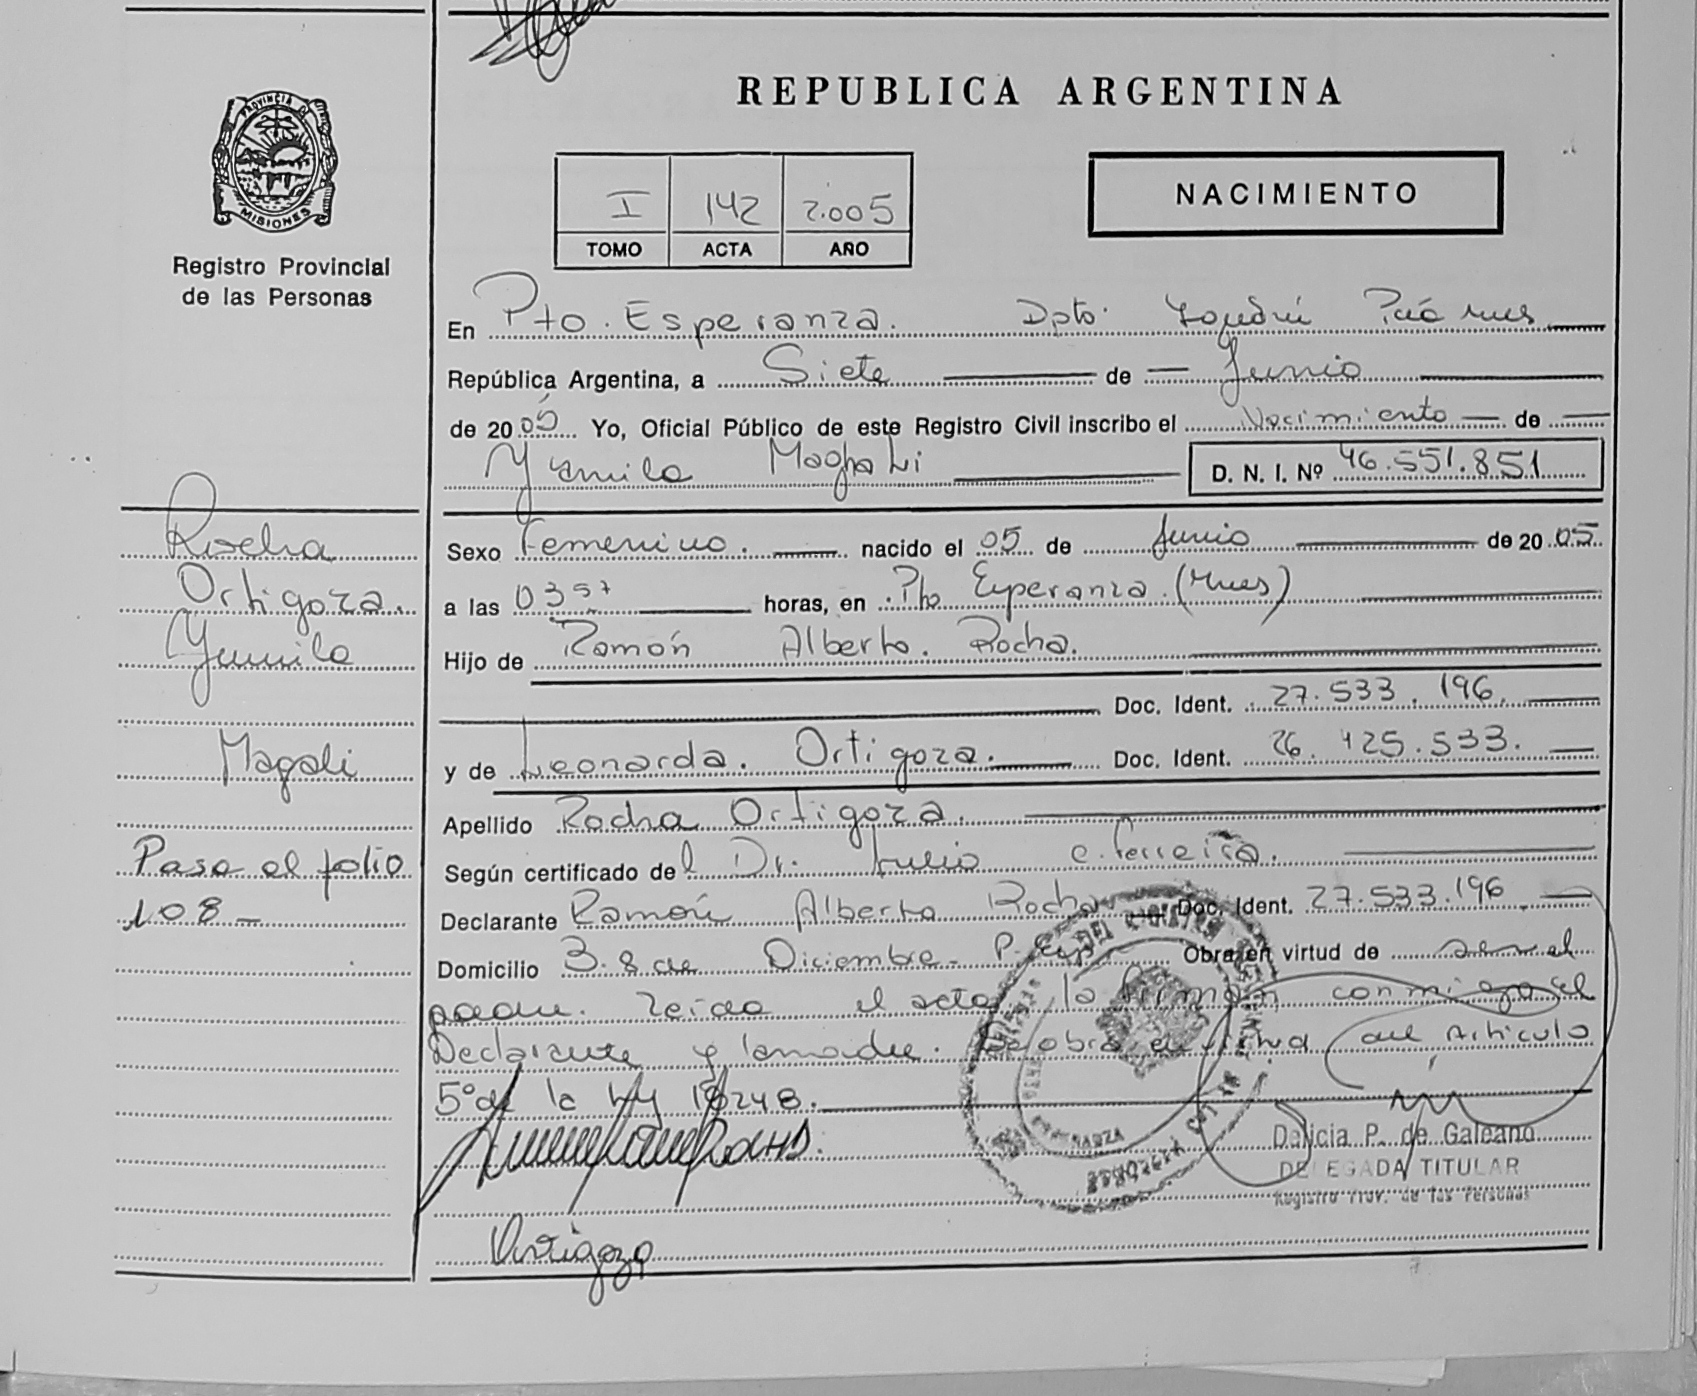 REPUBLICA ARGENTINA
PROVINCIA DE
MISIONES
Registro Provincial
de las Personas
I 142 2.005
TOMO ACTA AÑO
NACIMIENTO
En Pto. Esperanza. Dpto.
República Argentina, a Siete de Junio
de 2005 Yo, Oficial Público de este Registro Civil inscribo el Nacimiento de
Yamila Magali D. N. I. Nº 46.551.851
Rocha
Ortigoza.
Yamila
Magali
Pasa el folio
108-
Sexo Femenino. nacido el 05 de Junio de 2005.
a las 0357 horas, en Pto Esperanza. (Mnes)
Hijo de Ramón Alberto. Rocha.
Doc. Ident. 27.533.196.
y de Leonarda. Ortigoza. Doc. Ident. 26.425.533.
Apellido Rocha Ortigoza.
Según certificado del Dr. Julio C. Ferreira.
Declarante Ramón Alberto Rocha Doc. Ident. 27.533.196
Domicilio 3. 8 de Diciembre - P. Esp Obra en virtud de ser el
padre. Leida el acta la firman conmigo el
Declarante y la madre. Se obra en virtud del Articulo
5º de la Ley 18248.
Delicia P. de Galeano
DELEGADA TITULAR
Registro Prov. de las Personas
Ortigoza